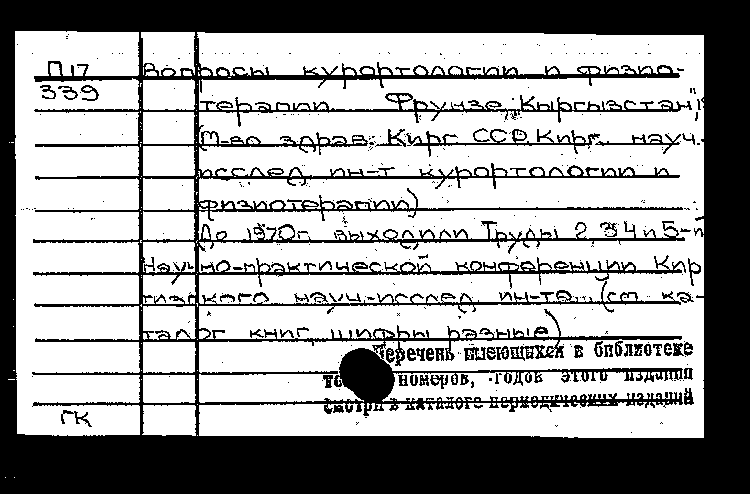 П17 Вопросы курортологии и физио-
339 терапии Фрунзе, "Кыргызстан",
(М-во здрав. Кирг. ССР. Кирг. науч.-
исслед. ин-т курортологии и
физиотерапии)
До 1970г. выходили Труды 2, 3, 4 и 5-й
Научно-практической конференции Кир
гизского науч.-исслед. ин-та. (см. ка-
талог книг, шифры разные)
Перечень имеющихся в библиотеке
номеров, годов этого издания
смотри в каталоге периодических изданий
ГК